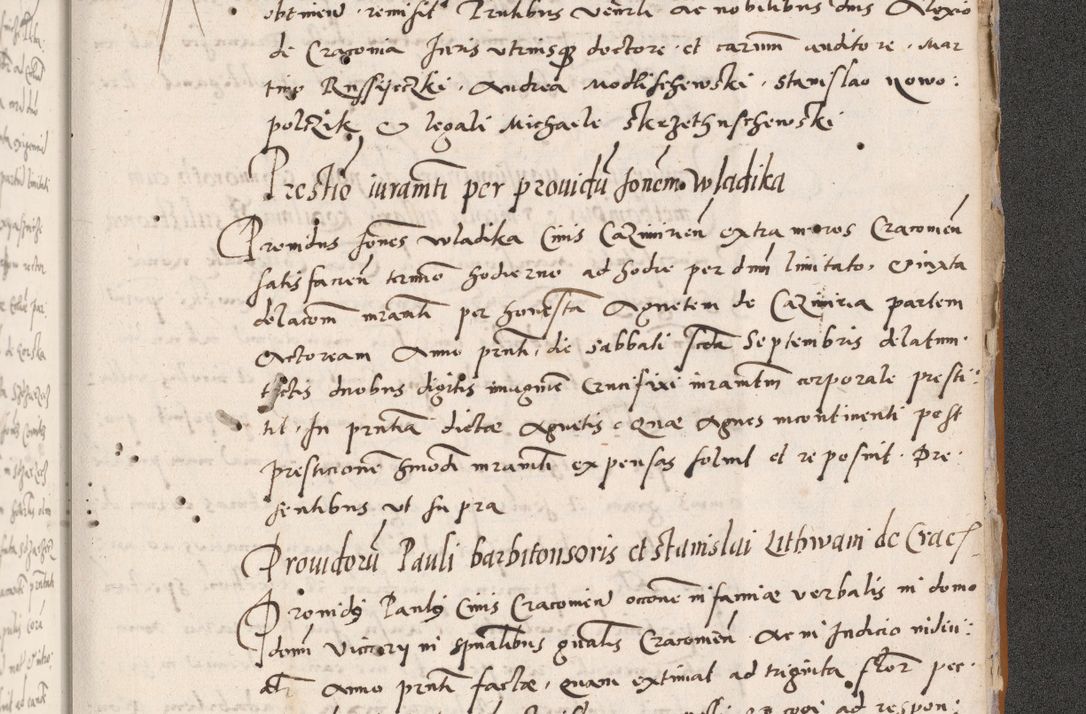 obtineri remisit Pntibus Venrli ac nobilibus dnis Alexio
de Cracovia Juris vtriusq doctore et carum auditore Mar
tino Russijeczki Andrea Modlischewski Stanislao Nowo:
polczik & legali Michaele Skrzethuschewski
Prestio iuramti per prouidu Jonem Wladika
Prouidus Jones Wladika Ciuis Cazimirien extra muros Cracouien
satisfacien termio hodierno ad hodie per dnm limitato, & iuxta
delacom iuramti per honesta Agnetem de Cazimiria partem
Actoream Anno pnti, die Sabbati scda Septembris delatum
tactis duobus digitis imaginis Crucifixi iuramtm corporale presti:
tit. In pntia dictae Agnetis. Quae Agnes incontinenti post
presticionem hmodi iuramti expensas soluit et reposuit. Pre
sentibus ut supra
Prouidoru Pauli barbitonsoris et Stanislai Lithwani de Crac
Prouidq Paulq Ciuis Cracouien occone infamiae verbalis in domo
dnm Vicarij in spualibus gnalis Cracouien Ac in Judicio
Anno pnti factae, quam extimat ad triginta flor pec:
ad respon: